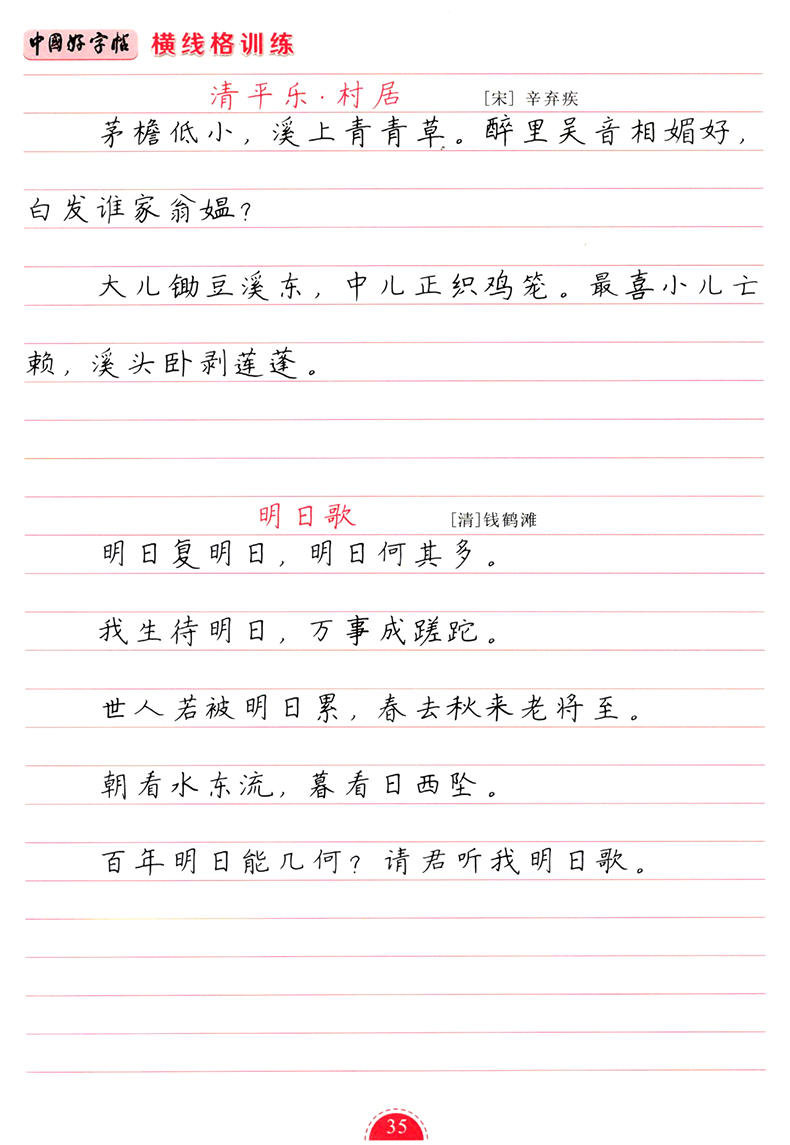 中國好字帖 横线格训练
清平乐·村居 [宋] 辛弃疾
茅檐低小，溪上青青草。醉里吴音相媚好，
白发谁家翁媪？
大儿锄豆溪东，中儿正织鸡笼。最喜小儿亡
赖，溪头卧剥莲蓬。
明日歌 [清]钱鹤滩
明日复明日，明日何其多。
我生待明日，万事成蹉跎。
世人若被明日累，春去秋来老将至。
朝看水东流，暮看日西坠。
百年明日能几何？请君听我明日歌。
35